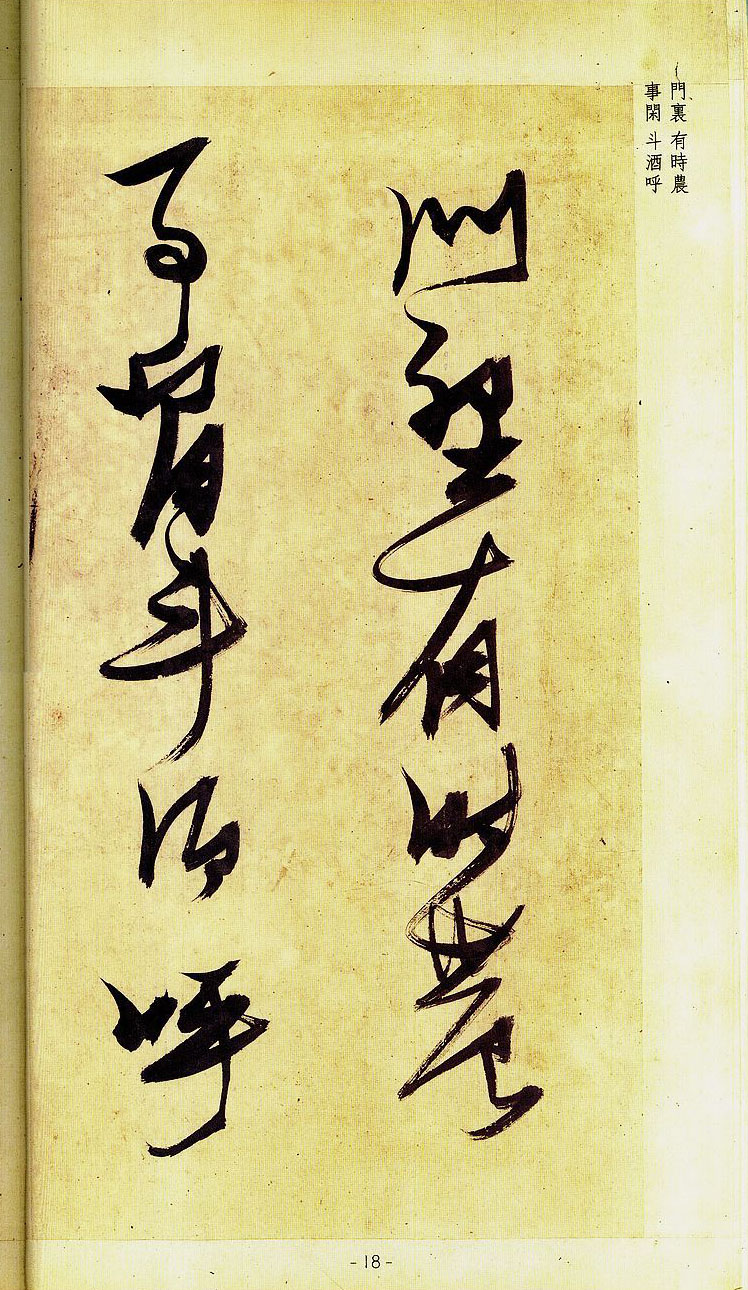 門裏 有時農
事閑 斗酒呼
門裏有時農
事閑斗酒呼
- 18 -